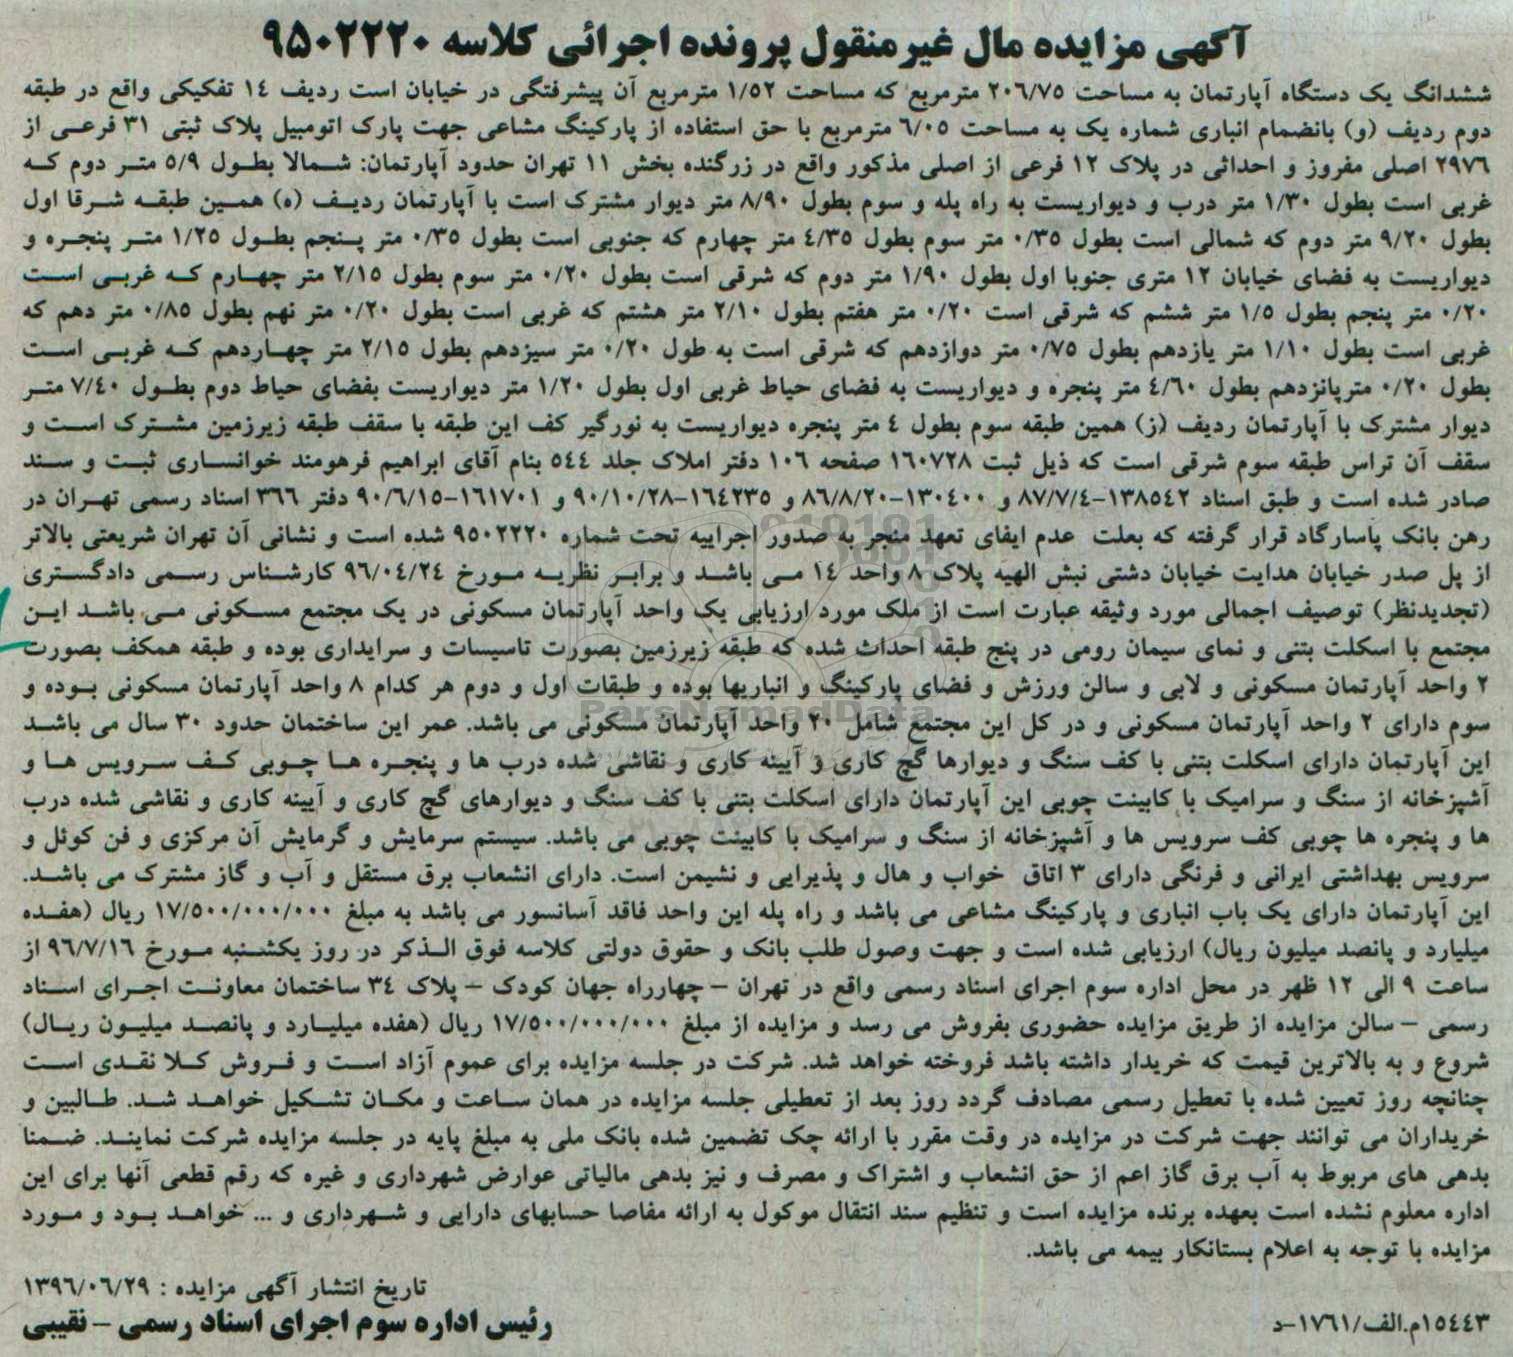 آگهی مزایده مال غیرمنقول پرونده اجرائی کلاسه ۹۵۰۲۲۲۰
ششدانگ یک دستگاه آپارتمان به مساحت ۲۰۶/۷۵ مترمربع که مساحت ۱/۵۲ مترمربع آن پیشرفتگی در خیابان است ردیف ۱۴ تفکیکی واقع در طبقه
دوم ردیف (و) بانضمام انباری شماره یک به مساحت ۶/۰۵ مترمربع با حق استفاده از پارکینگ مشاعی جهت پارک اتومبیل پلاک ثبتی ۳۱ فرعی از
۲۹۷۶ اصلی مفروز و احداثی در پلاک ۱۲ فرعی از اصلی مذکور واقع در زرگنده بخش ۱۱ تهران حدود آپارتمان: شمالا بطول ۵/۹ متر دوم که
غربی است بطول ۱/۳۰ متر درب و دیواریست به راه پله و سوم بطول ۸/۹۰ متر دیوار مشترک است با آپارتمان ردیف (ه) همین طبقه شرقا اول
بطول ۹/۲۰ متر دوم که شمالی است بطول ۰/۳۵ متر سوم بطول ۴/۳۵ متر چهارم که جنوبی است بطول ۰/۳۵ متر پنجم بطول ۱/۲۵ متر پنجره و
دیواریست به فضای خیابان ۱۲ متری جنوبا اول بطول ۱/۹۰ متر دوم که شرقی است بطول ۰/۲۰ متر سوم بطول ۲/۱۵ متر چهارم که غربی است
۰/۲۰ متر پنجم بطول ۱/۵ متر ششم که شرقی است ۰/۲۰ متر هفتم بطول ۲/۱۰ متر هشتم که غربی است بطول ۰/۲۰ متر نهم بطول ۰/۸۵ متر دهم که
غربی است بطول ۱/۱۰ متر یازدهم بطول ۰/۷۵ متر دوازدهم که شرقی است به طول ۰/۲۰ متر سیزدهم بطول ۲/۱۵ متر چهاردهم که غربی است
بطول ۰/۲۰ مترپانزدهم بطول ۴/۶۰ متر پنجره و دیواریست به فضای حیاط غربی اول بطول ۱/۲۰ متر دیواریست بفضای حیاط دوم بطول ۷/۴۰ متر
دیوار مشترک با آپارتمان ردیف (ز) همین طبقه سوم بطول ۴ متر پنجره دیواریست به نورگیر کف این طبقه با سقف طبقه زیرزمین مشترک است و
سقف آن تراس طبقه سوم شرقی است که ذیل ثبت ۱۶۰۷۲۸ صفحه ۱۰۶ دفتر املاک جلد ۵۴۴ بنام آقای ابراهیم فرهومند خوانساری ثبت و سند
صادر شده است و طبق اسناد ۱۳۸۵۴۲-۸۷/۷/۴ و ۱۳۰۴۰۰-۸۶/۸/۲۰ و ۱۶۴۲۳۵-۹۰/۱۰/۲۸ و ۱۶۱۷۰۱-۹۰/۶/۱۵ دفتر ۳۶۶ اسناد رسمی تهران در
رهن بانک پاسارگاد قرار گرفته که بعلت عدم ایفای تعهد منجر به صدور اجراییه تحت شماره ۹۵۰۲۲۲۰ شده است و نشانی آن تهران شریعتی بالاتر
از پل صدر خیابان هدایت خیابان دشتی نبش الهیه پلاک ۸ واحد ۱۴ می باشد و برابر نظریه مورخ ۹۶/۰۴/۲۴ کارشناس رسمی دادگستری
(تجدیدنظر) توصیف اجمالی مورد وثیقه عبارت است از ملک مورد ارزیابی یک واحد آپارتمان مسکونی در یک مجتمع مسکونی می باشد این
مجتمع با اسکلت بتنی و نمای سیمان رومی در پنج طبقه احداث شده که طبقه زیرزمین بصورت تاسیسات و سرایداری بوده و طبقه همکف بصورت
۲ واحد آپارتمان مسکونی و لابی و سالن ورزش و فضای پارکینگ و انباریها بوده و طبقات اول و دوم هر کدام ۸ واحد آپارتمان مسکونی بوده و
سوم دارای ۲ واحد آپارتمان مسکونی و در کل این مجتمع شامل ۲۰ واحد آپارتمان مسکونی می باشد. عمر این ساختمان حدود ۳۰ سال می باشد
این آپارتمان دارای اسکلت بتنی با کف سنگ و دیوارها گچ کاری و آیینه کاری و نقاشی شده درب ها و پنجره ها چوبی کف سرویس ها و
آشپزخانه از سنگ و سرامیک با کابینت چوبی این آپارتمان دارای اسکلت بتنی با کف سنگ و دیوارهای گچ کاری و آیینه کاری و نقاشی شده درب
ها و پنجره ها چوبی کف سرویس ها و آشپزخانه از سنگ و سرامیک با کابینت چوبی می باشد. سیستم سرمایش و گرمایش آن مرکزی و فن کوئل و
سرویس بهداشتی ایرانی و فرنگی دارای ۳ اتاق خواب و هال و پذیرایی و نشیمن است. دارای انشعاب برق مستقل و آب و گاز مشترک می باشد.
این آپارتمان دارای یک باب انباری و پارکینگ مشاعی می باشد و راه پله این واحد فاقد آسانسور می باشد به مبلغ ۱۷/۵۰۰/۰۰۰/۰۰۰ ریال (هفده
میلیارد و پانصد میلیون ریال) ارزیابی شده است و جهت وصول طلب بانک و حقوق دولتی کلاسه فوق الذکر در روز یکشنبه مورخ ۹۶/۷/۱۶ از
ساعت ۹ الی ۱۲ ظهر در محل اداره سوم اجرای اسناد رسمی واقع در تهران – چهارراه جهان کودک – پلاک ۳۴ ساختمان معاونت اجرای اسناد
رسمی – سالن مزایده از طریق مزایده حضوری بفروش می رسد و مزایده از مبلغ ۱۷/۵۰۰/۰۰۰/۰۰۰ ریال (هفده میلیارد و پانصد میلیون ریال)
شروع و به بالاترین قیمت که خریدار داشته باشد فروخته خواهد شد. شرکت در جلسه مزایده برای عموم آزاد است و فروش کلا نقدی است
چنانچه روز تعیین شده با تعطیل رسمی مصادف گردد روز بعد از تعطیلی جلسه مزایده در همان ساعت و مکان تشکیل خواهد شد. طالبین و
خریداران می توانند جهت شرکت در مزایده در وقت مقرر با ارائه چک تضمین شده بانک ملی به مبلغ پایه در جلسه مزایده شرکت نمایند. ضمنا
بدهی های مربوط به آب برق گاز اعم از حق انشعاب و اشتراک و مصرف و نیز بدهی مالیاتی عوارض شهرداری و غیره که رقم قطعی آنها برای این
اداره معلوم نشده است بعهده برنده مزایده است و تنظیم سند انتقال موکول به ارائه مفاصا حسابهای دارایی و شهرداری و ... خواهد بود و مورد
مزایده با توجه به اعلام بستانکار بیمه می باشد.
تاریخ انتشار آگهی مزایده : ۱۳۹۶/۰۶/۲۹
رئیس اداره سوم اجرای اسناد رسمی – نقیبی
۱۵۴۴۳م.الف/۱۷۶۱-د
ParsNamadData